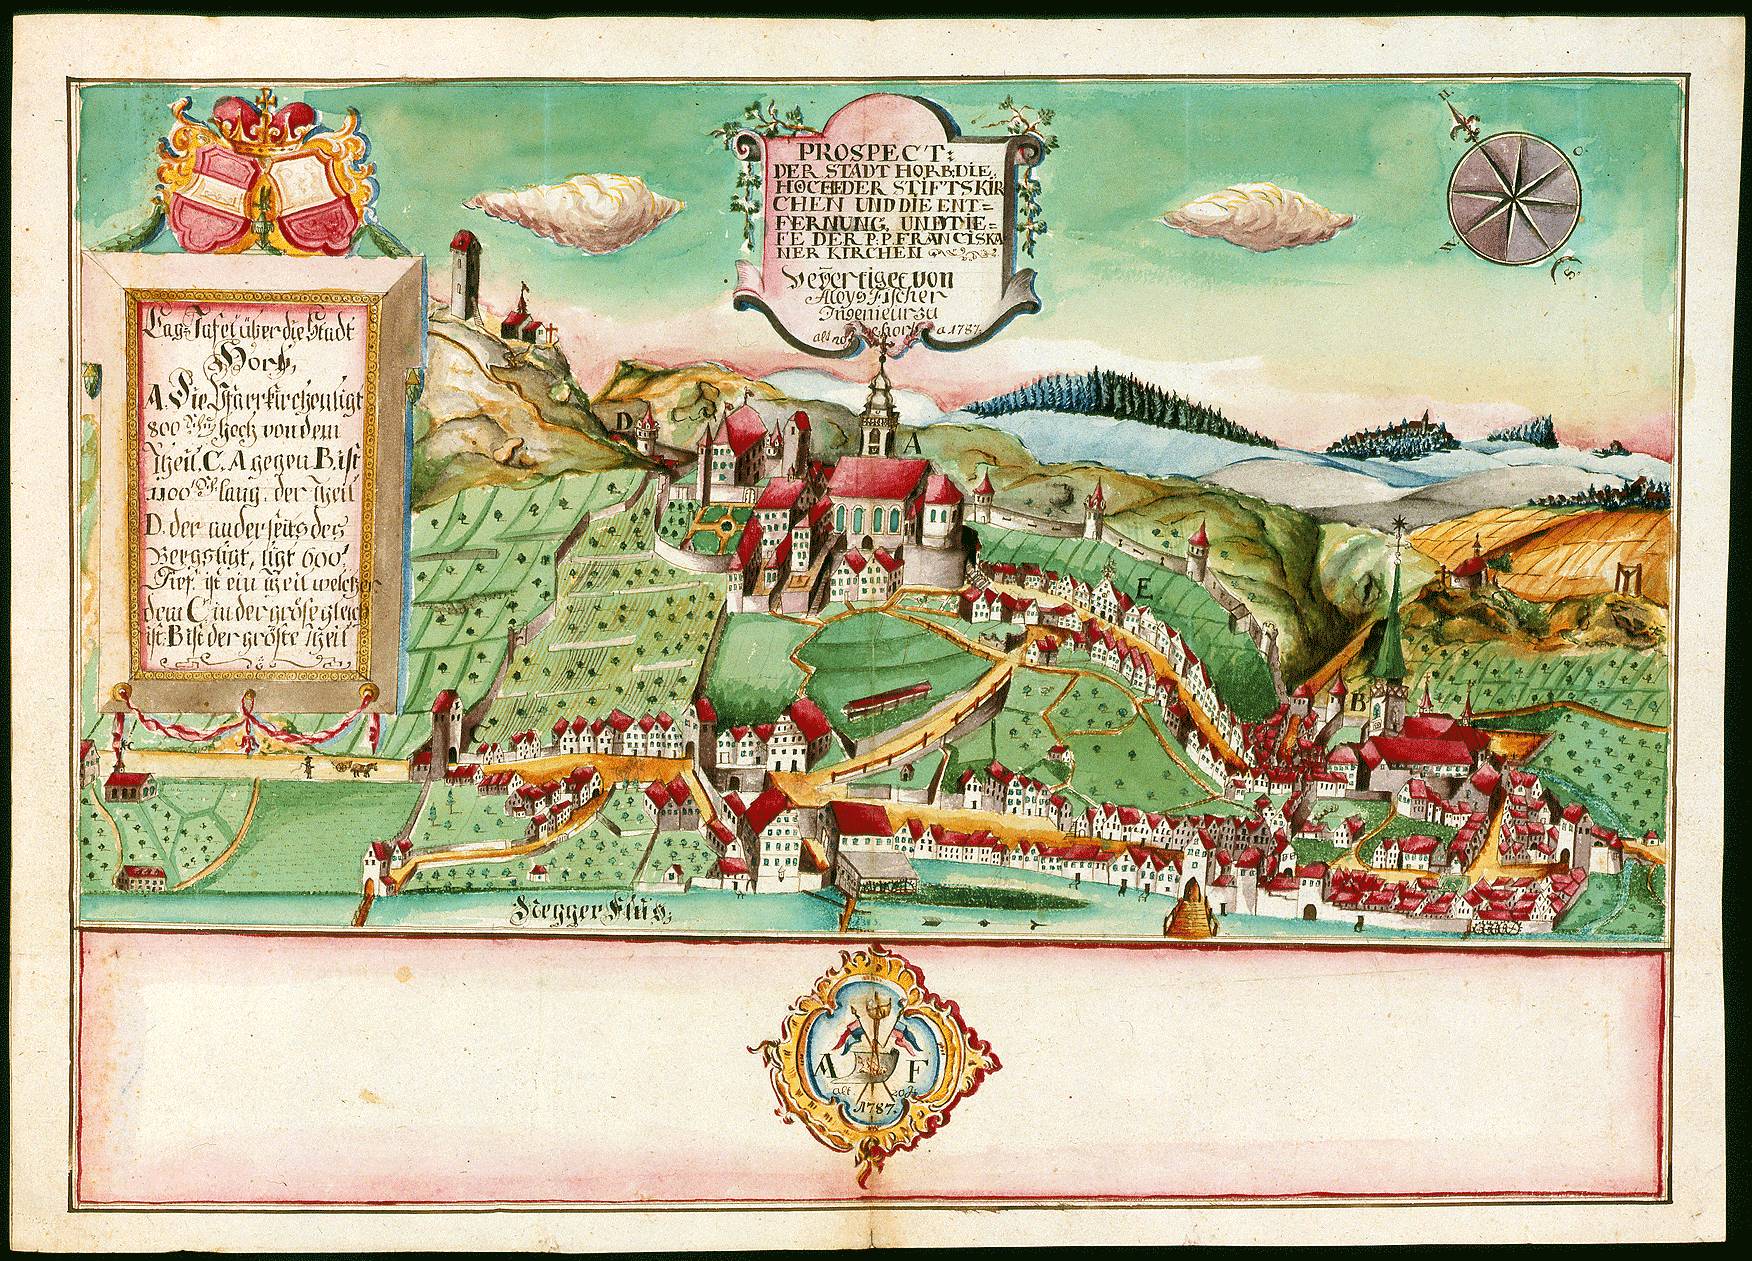 PROSPECT:
DER STADT HORB: DIE
HÖCHE DER STIFTSKIR
CHEN UND DIE ENT=
FERNUNG, UND DIE=
FE DER P.P. FRANCISKA
NER KIRCHEN
Veffertiget von
Aloys Fischer
Ingenieur zu
Horb a 1787.
alt 20 J
Lag: Tafel über die Stadt
Horb,
A. Die Pfarrkirchen ligt
800 Schu hoch von dem
Theil. C. A gegen B. ist
1100 Sch lang. der Theil
D. der anderseits des
Bergs ligt, ligt 600'
Tief. ist ein Theil welcher
dem C in der gröse gleich
ist. B ist der gröste Theil
O.
S.
W.
A
B
C
D
E
I
Negger Flus,
A F
alt 20 J
1787.